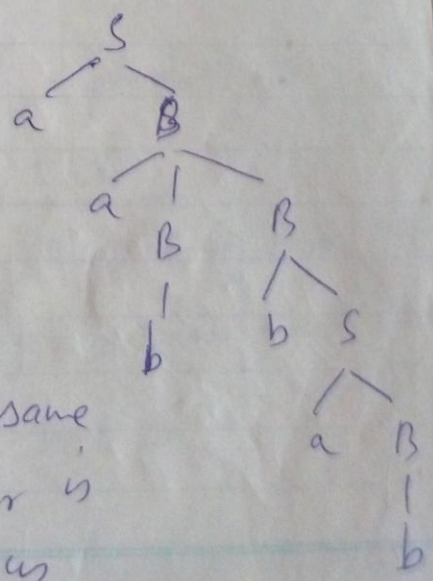 S
a B
a B B
b b S
same
a B
r is
b
us